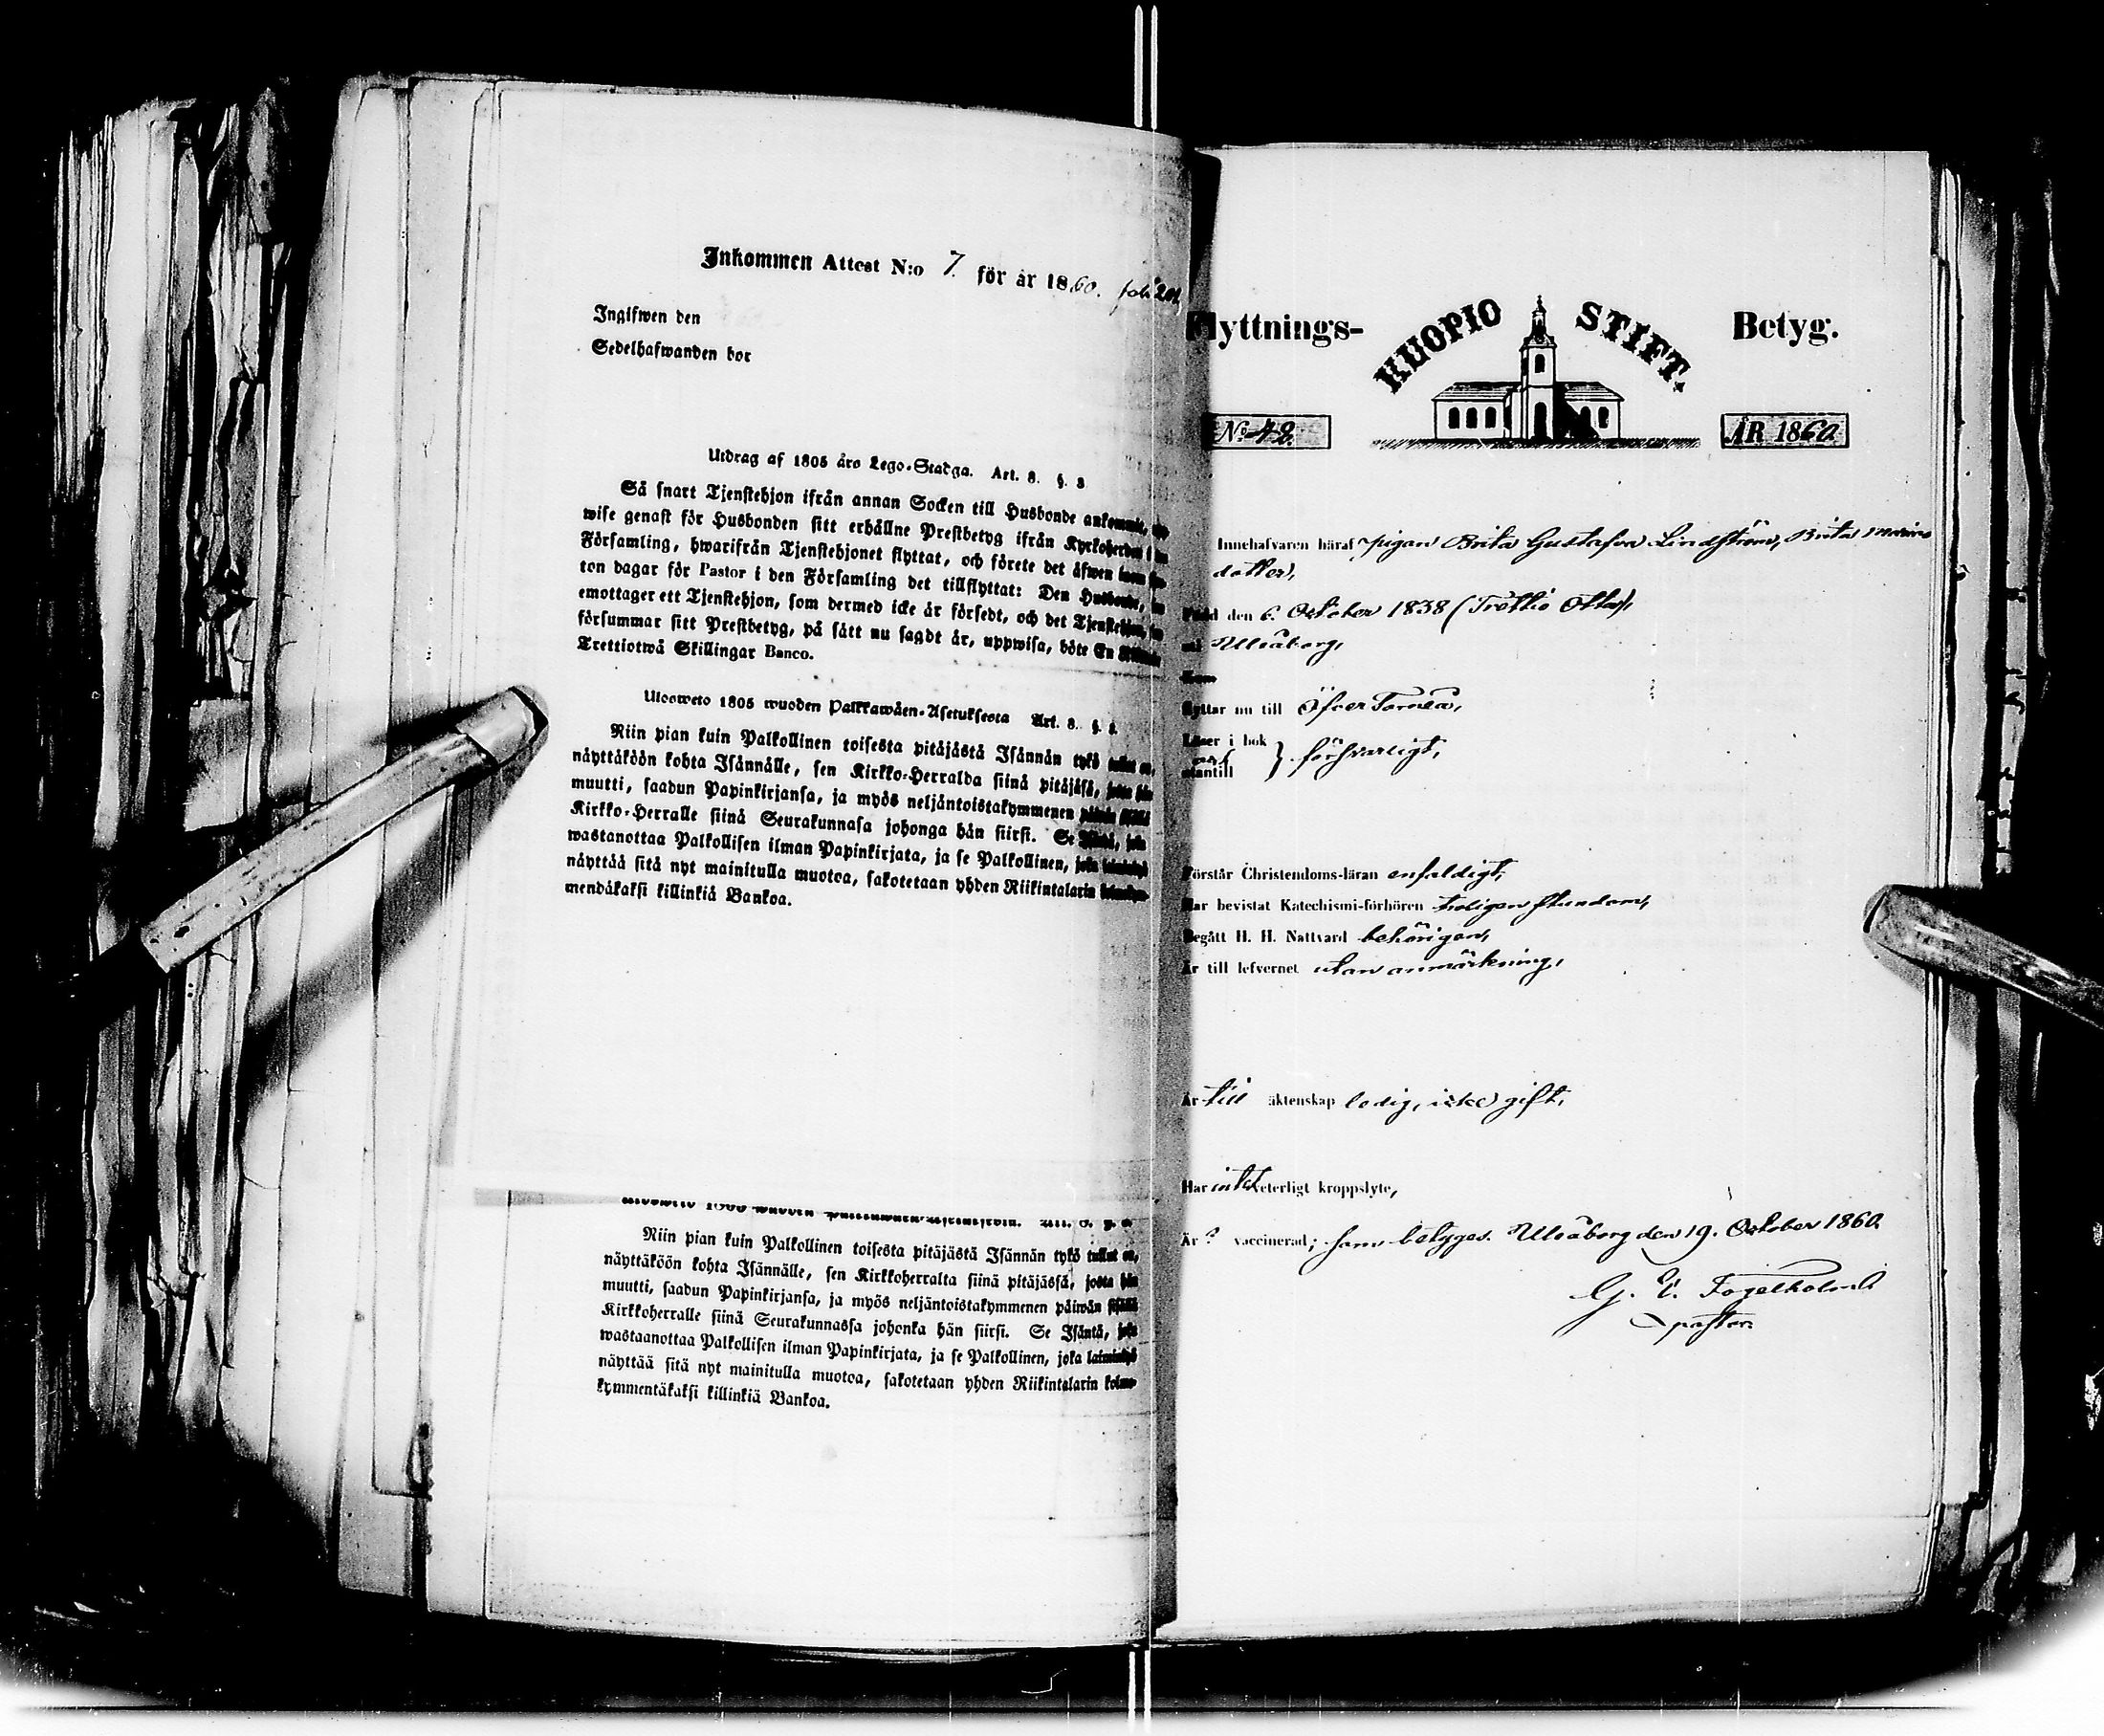 Inkommen Attest N:o 7. för år 1860.
Ingifwen den
Sedelhafwanden bor
Utdrag af 1805 års Lego-Stadga. Art. 8. §. 3
Så snart Tjenstehjon ifrån annan Socken till Husbonde ankommit,
wise genast för Husbonden sitt erhållne Prestbetyg ifrån Kyrkoherden i
Församling, hwarifrån Tjenstehjonet flyttat, och förete det äfwen inom
ton dagar för Pastor i den Församling det tillflyttat: Den Husbonde,
emottager ett Tjenstehjon, som dermed icke är försedt, och det Tjenstehjon,
försummar sitt Prestbetyg, på sätt nu sagdt är, uppwisa, böte En
Trettiotwå Skillingar Banco.
Ulosweto 1805 wuoden Palkkawäen-Asetuksesta Art. 8. §.
Niin pian kuin Palkollinen toisesta pitäjästä Isännän tykö tullut on,
näyttäköön kohta Isännälle, sen Kirkko-Herralda siinä pitäjäsä, josta hän
muutti, saadun Papinkirjansa, ja myös neljäntoistakymmenen päiwän
Kirkko-Herralle siinä Seurakunnasa johonga hän siirsi. Se
wastanottaa Palkollisen ilman Papinkirjata, ja se Palkollinen, joka
näyttää sitä nyt mainitulla muotoa, sakotetaan yhden Riikintalarin
mendäkaksi killinkiä Bankoa.
Niin pian kuin Palkollinen toisesta pitäjästä Isännän tykö tullut on,
näyttäköön kohta Isännälle, sen Kirkkoherralta siinä pitäjässä, josta hän
muutti, saadun Papinkirjansa, ja myös neljäntoistakymmenen päiwän sisällä
Kirkkoherralle siinä Seurakunnassa johonka hän siirsi. Se Isäntä, joka
wastaanottaa Palkollisen ilman Papinkirjata, ja se Palkollinen, joka laiminlyö
näyttää sitä nyt mainitulla muotoa, sakotetaan yhden Riikintalarin kolme-
kymmentäkaksi killinkiä Bankoa.
Flyttnings- KUOPIO STIFT. Betyg.
No 42. ÅR 1860.
Innehafvaren häraf pigan Brita Gustafva Lindström, Brita Maria
dotter,
Född den 6. October 1838 (Trettio Åtta),
uti Uleåborg,
Kom
flyttar nu till ÖfverTorneå,
Läser i bok
utantill } försvarligt,
Förstår Christendoms-läran enfaldigt,
Har bevistat Katechismi-förhören troligen stundom,
Begått H. H. Nattvard behörigen,
Är till lefvernet utan anmärkning,
Är till äktenskap ledig, icke gift,
Har intet veterligt kroppslyte,
Är ? vaccinerad; som betygas. Uleåborg den 19. October 1860.
G. E. Fogelholm
pastor